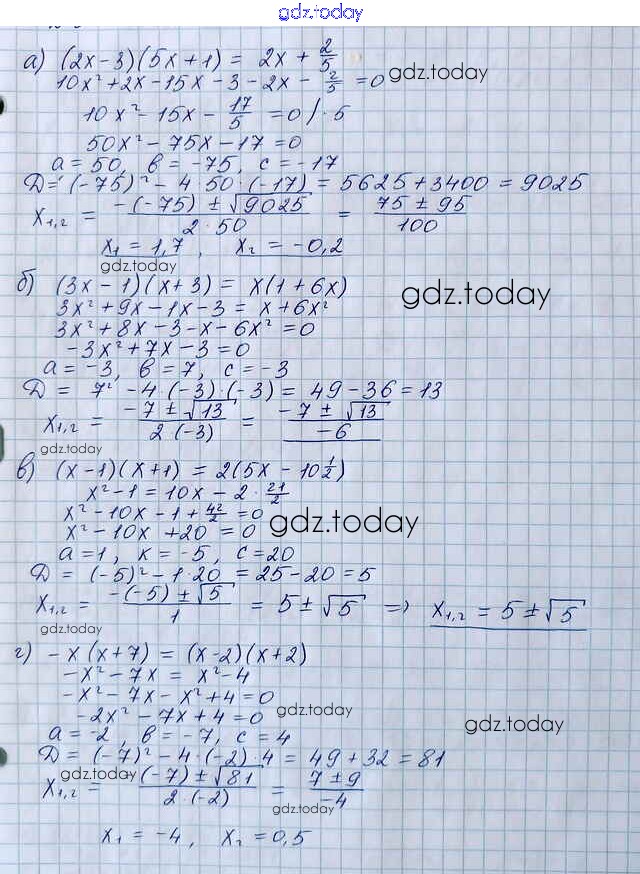 gdz.today
а) (2x-3)(5x+1) = 2x + 2/5
10x² + 2x - 15x - 3 - 2x - 2/5 = 0 gdz.today
10x² - 15x - 17/5 = 0 / · 5
50x² - 75x - 17 = 0
a = 50, b = -75, c = -17
D = (-75)² - 4 · 50 · (-17) = 5625 + 3400 = 9025
x₁,₂ = (-(-75) ± √9025)/(2 · 50) = (75 ± 95)/100
x₁ = 1,7, x₂ = -0,2
gdz.today
б) (3x - 1)(x + 3) = x(1 + 6x) gdz.today
3x² + 9x - 1x - 3 = x + 6x²
3x² + 8x - 3 - x - 6x² = 0
-3x² + 7x - 3 = 0
a = -3, b = 7, c = -3
D = 7² - 4 · (-3) · (-3) = 49 - 36 = 13
x₁,₂ = (-7 ± √13)/(2 · (-3)) = (-7 ± √13)/(-6)
gdz.today
в) (x-1)(x+1) = 2(5x - 10 1/2)
x² - 1 = 10x - 2 · 21/2
x² - 10x - 1 + 42/2 = 0
x² - 10x + 20 = 0 gdz.today
a = 1, k = -5, c = 20
D = (-5)² - 1 · 20 = 25 - 20 = 5
x₁,₂ = (-(-5) ± √5)/1 = 5 ± √5 => x₁,₂ = 5 ± √5
gdz.today
г) -x(x+7) = (x-2)(x+2)
-x² - 7x = x² - 4
-x² - 7x - x² + 4 = 0
-2x² - 7x + 4 = 0 gdz.today
a = -2, b = -7, c = 4 gdz.today
D = (-7)² - 4 · (-2) · 4 = 49 + 32 = 81
gdz.today
x₁,₂ = (-(-7) ± √81)/(2 · (-2)) = (7 ± 9)/(-4)
gdz.today
x₁ = -4, x₂ = 0,5